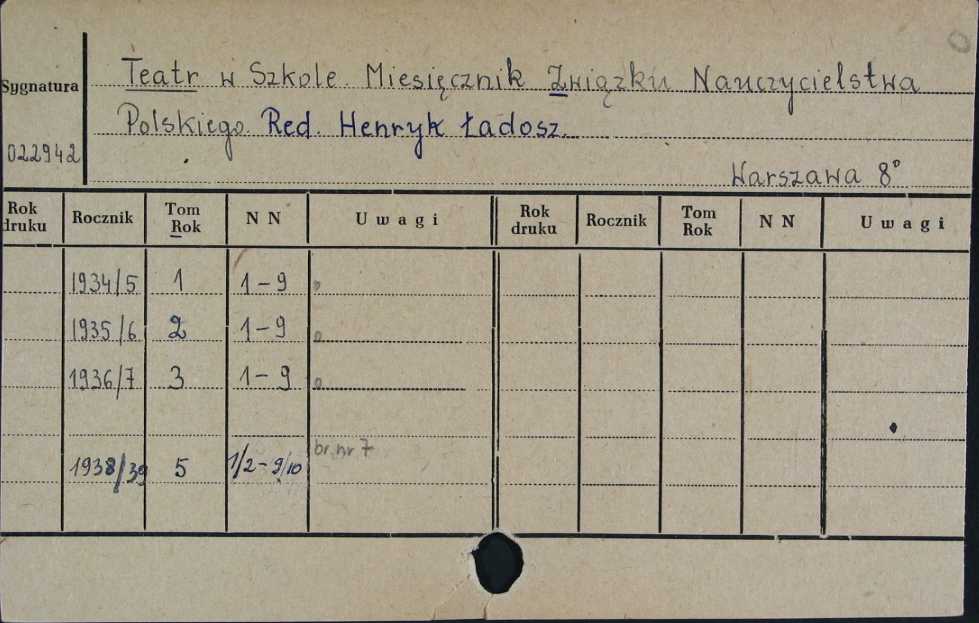 Teatr w Szkole. Miesięcznik Związku Nauczycielstwa
Sygnatura
Polskiego. Red. Henryk Ładosz.
022942
Warszawa 8°
Rok druku Rocznik Tom Rok N N Uwagi Rok druku Rocznik Tom Rok N N Uwagi
1934/5 1 1-9
1935/6 2 1-9
1936/7 3 1-9
br. nr 7
1938/39 5 1/2-9/10